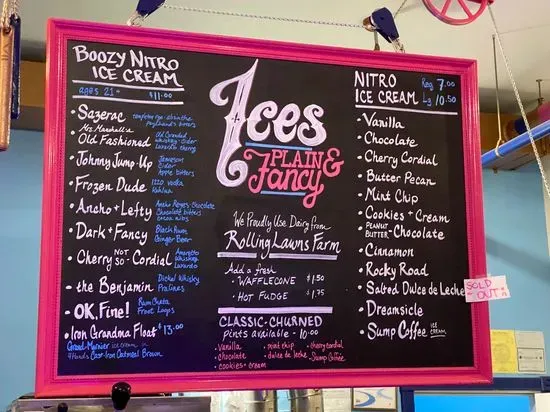 Boozy Nitro
Ice Cream
ages 21+ $11.00
Sazerac
Mrs. Marshall's
Old Fashioned
Old Grandad
whiskey-cider
Luxardo cherry
Johnny Jump-Up
Jameson
Cider
Apple bitters
Frozen Dude
1220 vodka
Kahlua
Ancho + Lefty
Ancho Reyes-Chocolate
Chocolate bitters
cocoa nibs
Dark + Fancy
Black Rum
Ginger Beer
Cherry Not So- Cordial
Amaretto
Whiskey
Luxardo
the Benjamin
Dickel Whiskey
Pralines
OK, Fine!
Rum Chata
Froot Loops
Iron Grandma Float $13.00
Grand-Marnier ice cream in
4 Hands Cast-Iron Oatmeal Brown
Ices
Plain &
Fancy
We Proudly Use Dairy from
Rolling Lawns Farm
Add a fresh
- Wafflecone $1.50
- Hot Fudge $1.75
Classic-Churned
pints available - 10.00
• Vanilla • mint chip • cherry cordial
• chocolate • dulce de leche • Sump Coffee
• cookies + cream
Nitro Reg 7.00
Ice Cream Lg 10.50
• Vanilla
• Chocolate
• Cherry Cordial
• Butter Pecan
• Mint Chip
• Cookies + Cream
• Peanut Butter - Chocolate
• Cinnamon
• Rocky Road
• Salted Dulce de Leche
SOLD
OUT
• Dreamsicle
• Sump Coffee Ice Cream